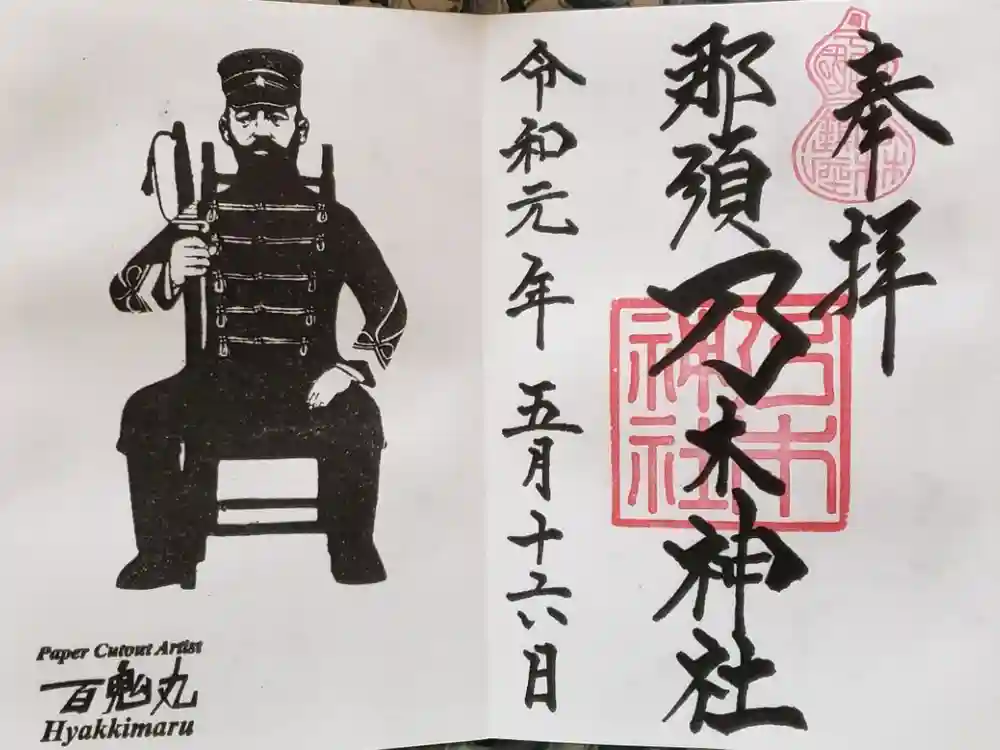 奉拝
那須乃木神社
乃木
神社
令和元年 五月十六日
Paper Cutout Artist
百鬼丸
Hyakkimaru